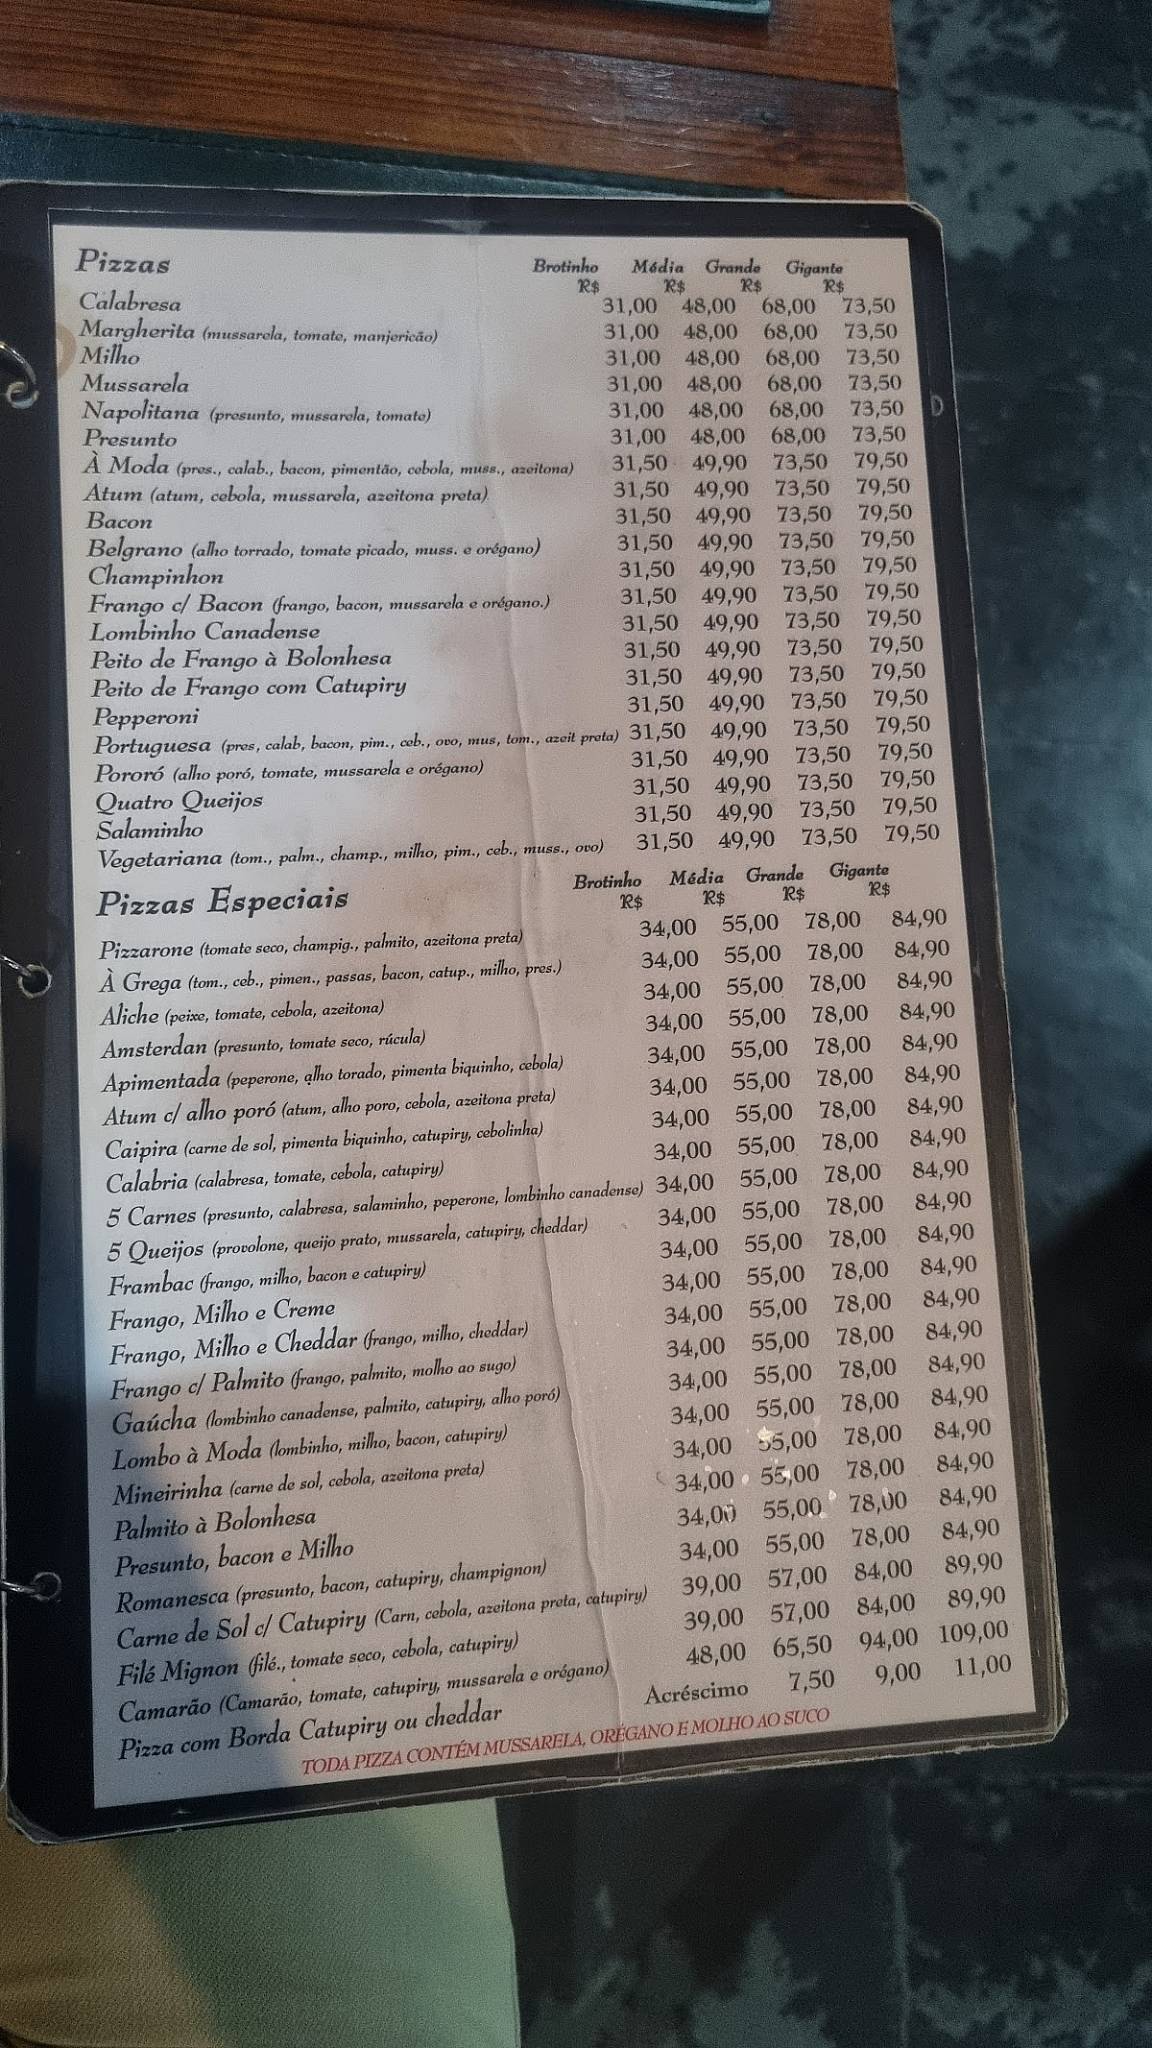 Pizzas Brotinho Média Grande Gigante
R$ R$ R$ R$
Calabresa 31,00 48,00 68,00 73,50
Margherita (mussarela, tomate, manjericão) 31,00 48,00 68,00 73,50
Milho 31,00 48,00 68,00 73,50
Mussarela 31,00 48,00 68,00 73,50
Napolitana (presunto, mussarela, tomate) 31,00 48,00 68,00 73,50
Presunto 31,00 48,00 68,00 73,50
À Moda (pres., calab., bacon, pimentão, cebola, muss., azeitona) 31,50 49,90 73,50 79,50
Atum (atum, cebola, mussarela, azeitona preta) 31,50 49,90 73,50 79,50
Bacon 31,50 49,90 73,50 79,50
Belgrano (alho torrado, tomate picado, muss. e orégano) 31,50 49,90 73,50 79,50
Champinhon 31,50 49,90 73,50 79,50
Frango c/ Bacon (frango, bacon, mussarela e orégano.) 31,50 49,90 73,50 79,50
Lombinho Canadense 31,50 49,90 73,50 79,50
Peito de Frango à Bolonhesa 31,50 49,90 73,50 79,50
Peito de Frango com Catupiry 31,50 49,90 73,50 79,50
Pepperoni 31,50 49,90 73,50 79,50
Portuguesa (pres, calab, bacon, pim., ceb., ovo, mus, tom., azeit preta) 31,50 49,90 73,50 79,50
Pororó (alho poró, tomate, mussarela e orégano) 31,50 49,90 73,50 79,50
Quatro Queijos 31,50 49,90 73,50 79,50
Salaminho 31,50 49,90 73,50 79,50
Vegetariana (tom., palm., champ., milho, pim., ceb., muss., ovo) 31,50 49,90 73,50 79,50
Pizzas Especiais Brotinho Média Grande Gigante
R$ R$ R$ R$
Pizzarone (tomate seco, champig., palmito, azeitona preta) 34,00 55,00 78,00 84,90
À Grega (tom., ceb., pimen., passas, bacon, catup., milho, pres.) 34,00 55,00 78,00 84,90
Aliche (peixe, tomate, cebola, azeitona) 34,00 55,00 78,00 84,90
Amsterdan (presunto, tomate seco, rúcula) 34,00 55,00 78,00 84,90
Apimentada (peperone, alho torado, pimenta biquinho, cebola) 34,00 55,00 78,00 84,90
Atum c/ alho poró (atum, alho poro, cebola, azeitona preta) 34,00 55,00 78,00 84,90
Caipira (carne de sol, pimenta biquinho, catupiry, cebolinha) 34,00 55,00 78,00 84,90
Calabria (calabresa, tomate, cebola, catupiry) 34,00 55,00 78,00 84,90
5 Carnes (presunto, calabresa, salaminho, peperone, lombinho canadense) 34,00 55,00 78,00 84,90
5 Queijos (provolone, queijo prato, mussarela, catupiry, cheddar) 34,00 55,00 78,00 84,90
Frambac (frango, milho, bacon e catupiry) 34,00 55,00 78,00 84,90
Frango, Milho e Creme 34,00 55,00 78,00 84,90
Frango, Milho e Cheddar (frango, milho, cheddar) 34,00 55,00 78,00 84,90
Frango c/ Palmito (frango, palmito, molho ao sugo) 34,00 55,00 78,00 84,90
Gaúcha (lombinho canadense, palmito, catupiry, alho poró) 34,00 55,00 78,00 84,90
Lombo à Moda (lombinho, milho, bacon, catupiry) 34,00 55,00 78,00 84,90
Mineirinha (carne de sol, cebola, azeitona preta) 34,00 55,00 78,00 84,90
Palmito à Bolonhesa 34,00 55,00 78,00 84,90
Presunto, bacon e Milho 34,00 55,00 78,00 84,90
Romanesca (presunto, bacon, catupiry, champignon) 34,00 55,00 78,00 84,90
Carne de Sol c/ Catupiry (Carn, cebola, azeitona preta, catupiry) 39,00 57,00 84,00 89,90
Filé Mignon (filé., tomate seco, cebola, catupiry) 39,00 57,00 84,00 89,90
Camarão (Camarão, tomate, catupiry, mussarela e orégano) 48,00 65,50 94,00 109,00
Pizza com Borda Catupiry ou cheddar Acréscimo 7,50 9,00 11,00
TODA PIZZA CONTÉM MUSSARELA, ORÉGANO E MOLHO AO SUCO